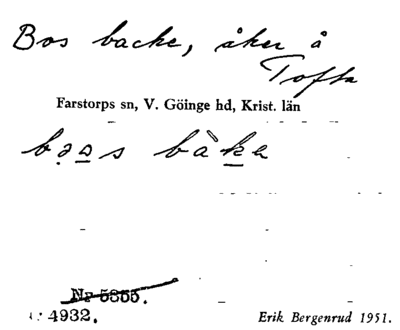 Bos backe, åker å
Tofta
Farstorps sn, V. Göinge hd, Krist. län
Nr 5855.
4932.
Erik Bergenrud 1951.